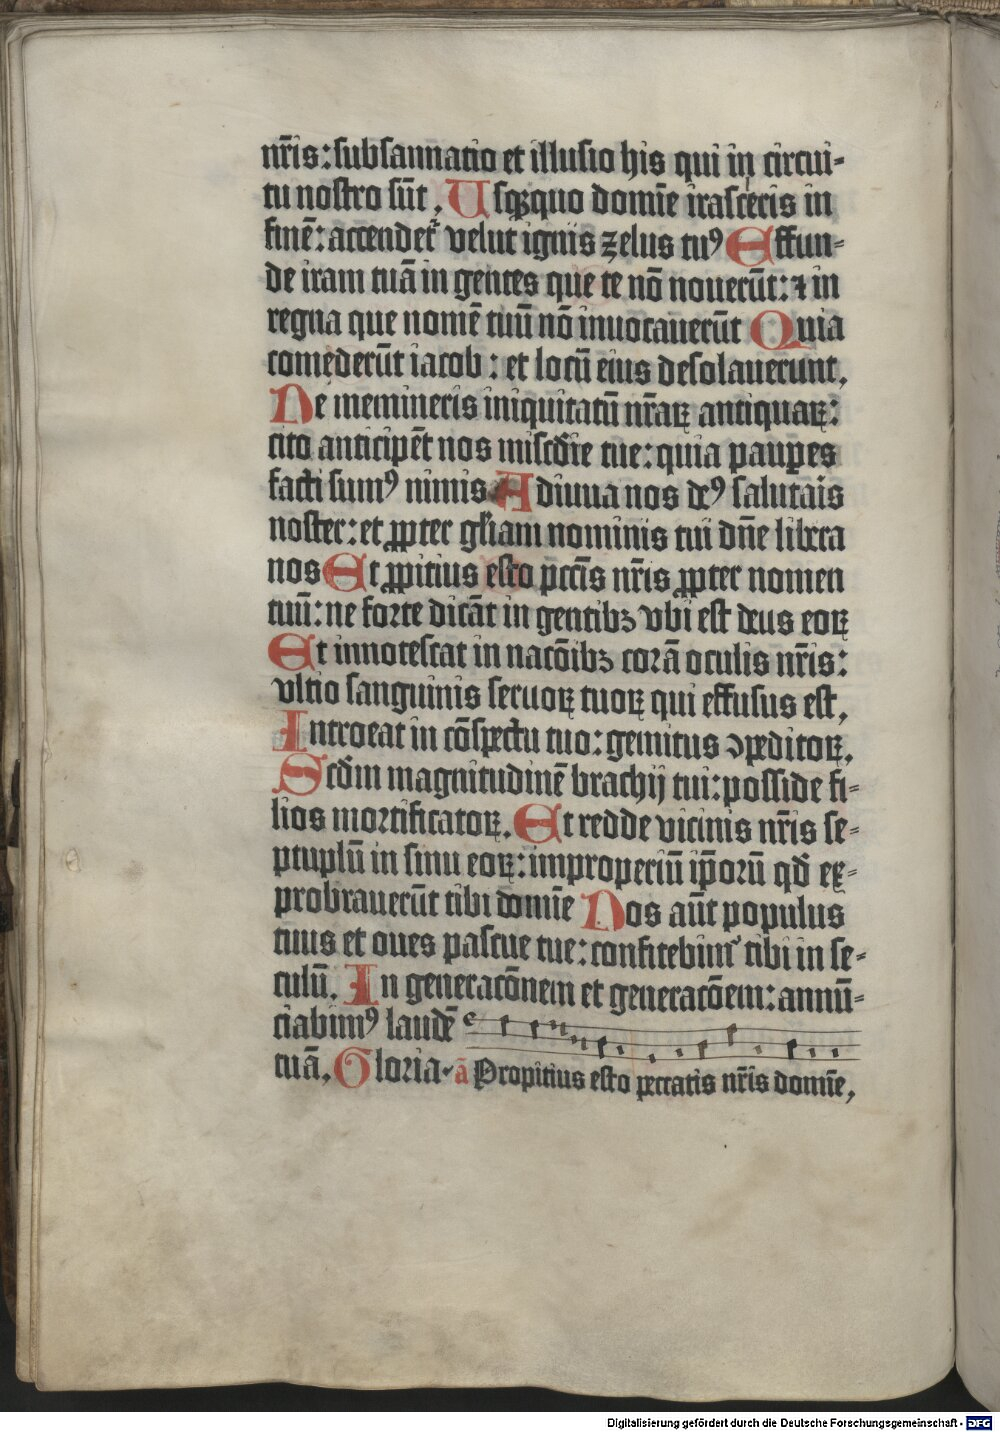 nr̄is: subsannatio et illusio his qui in circui-
tu nostro sūt. Usqꝫquo domīe irasceris in
finē: accendet᷑ velut ignis zelus tuꝰ Effun-
de iram tuā in gentes que te nō nouerūt: ⁊ in
regna que nomē tuū nō inuocauerūt Quia
comederūt iacob: et locū eius desolauerunt.
Ne memineris iniquitatū nr̄aꝝ antiquaꝝ:
cito anticipēt nos miscd̄ie tue: quia paup̲es
facti sumꝰ nimis Adiuua nos deꝰ salutaīs
noster: et ꝓpter gl̄iam nominis tui dn̄e libera
nos Et ꝓpitius esto p̄cc̄is nr̄is ꝓpter nomen
tuū: ne forte dicāt in gentibꝫ vbi est deus eoꝝ
Et innotescat in nac̄oibꝫ corā oculis nr̄is:
vltio sanguinis seruoꝝ tuoꝝ qui effusus est.
Introeat in cōspectu tuo: gemitus ↄpeditoꝝ.
Scd̄m magnitudinē brachij tui: posside fi-
lios mortificatoꝝ. Et redde vicinis nr̄is se-
ptuplū in sinu eoꝝ: improperiū ip̄orū qd̄ ex-
probrauerūt tibi domīe Nos aūt populus
tuus et oues pascue tue: confitebimꝰ tibi in se-
culū. In generac̄onem et generac̄oem: annū-
ciabimꝰ laudē
tuā. Gloria. ā Propitius esto peccatis nr̄is domīe,
Digitalisierung gefördert durch die Deutsche Forschungsgemeinschaft - DFG